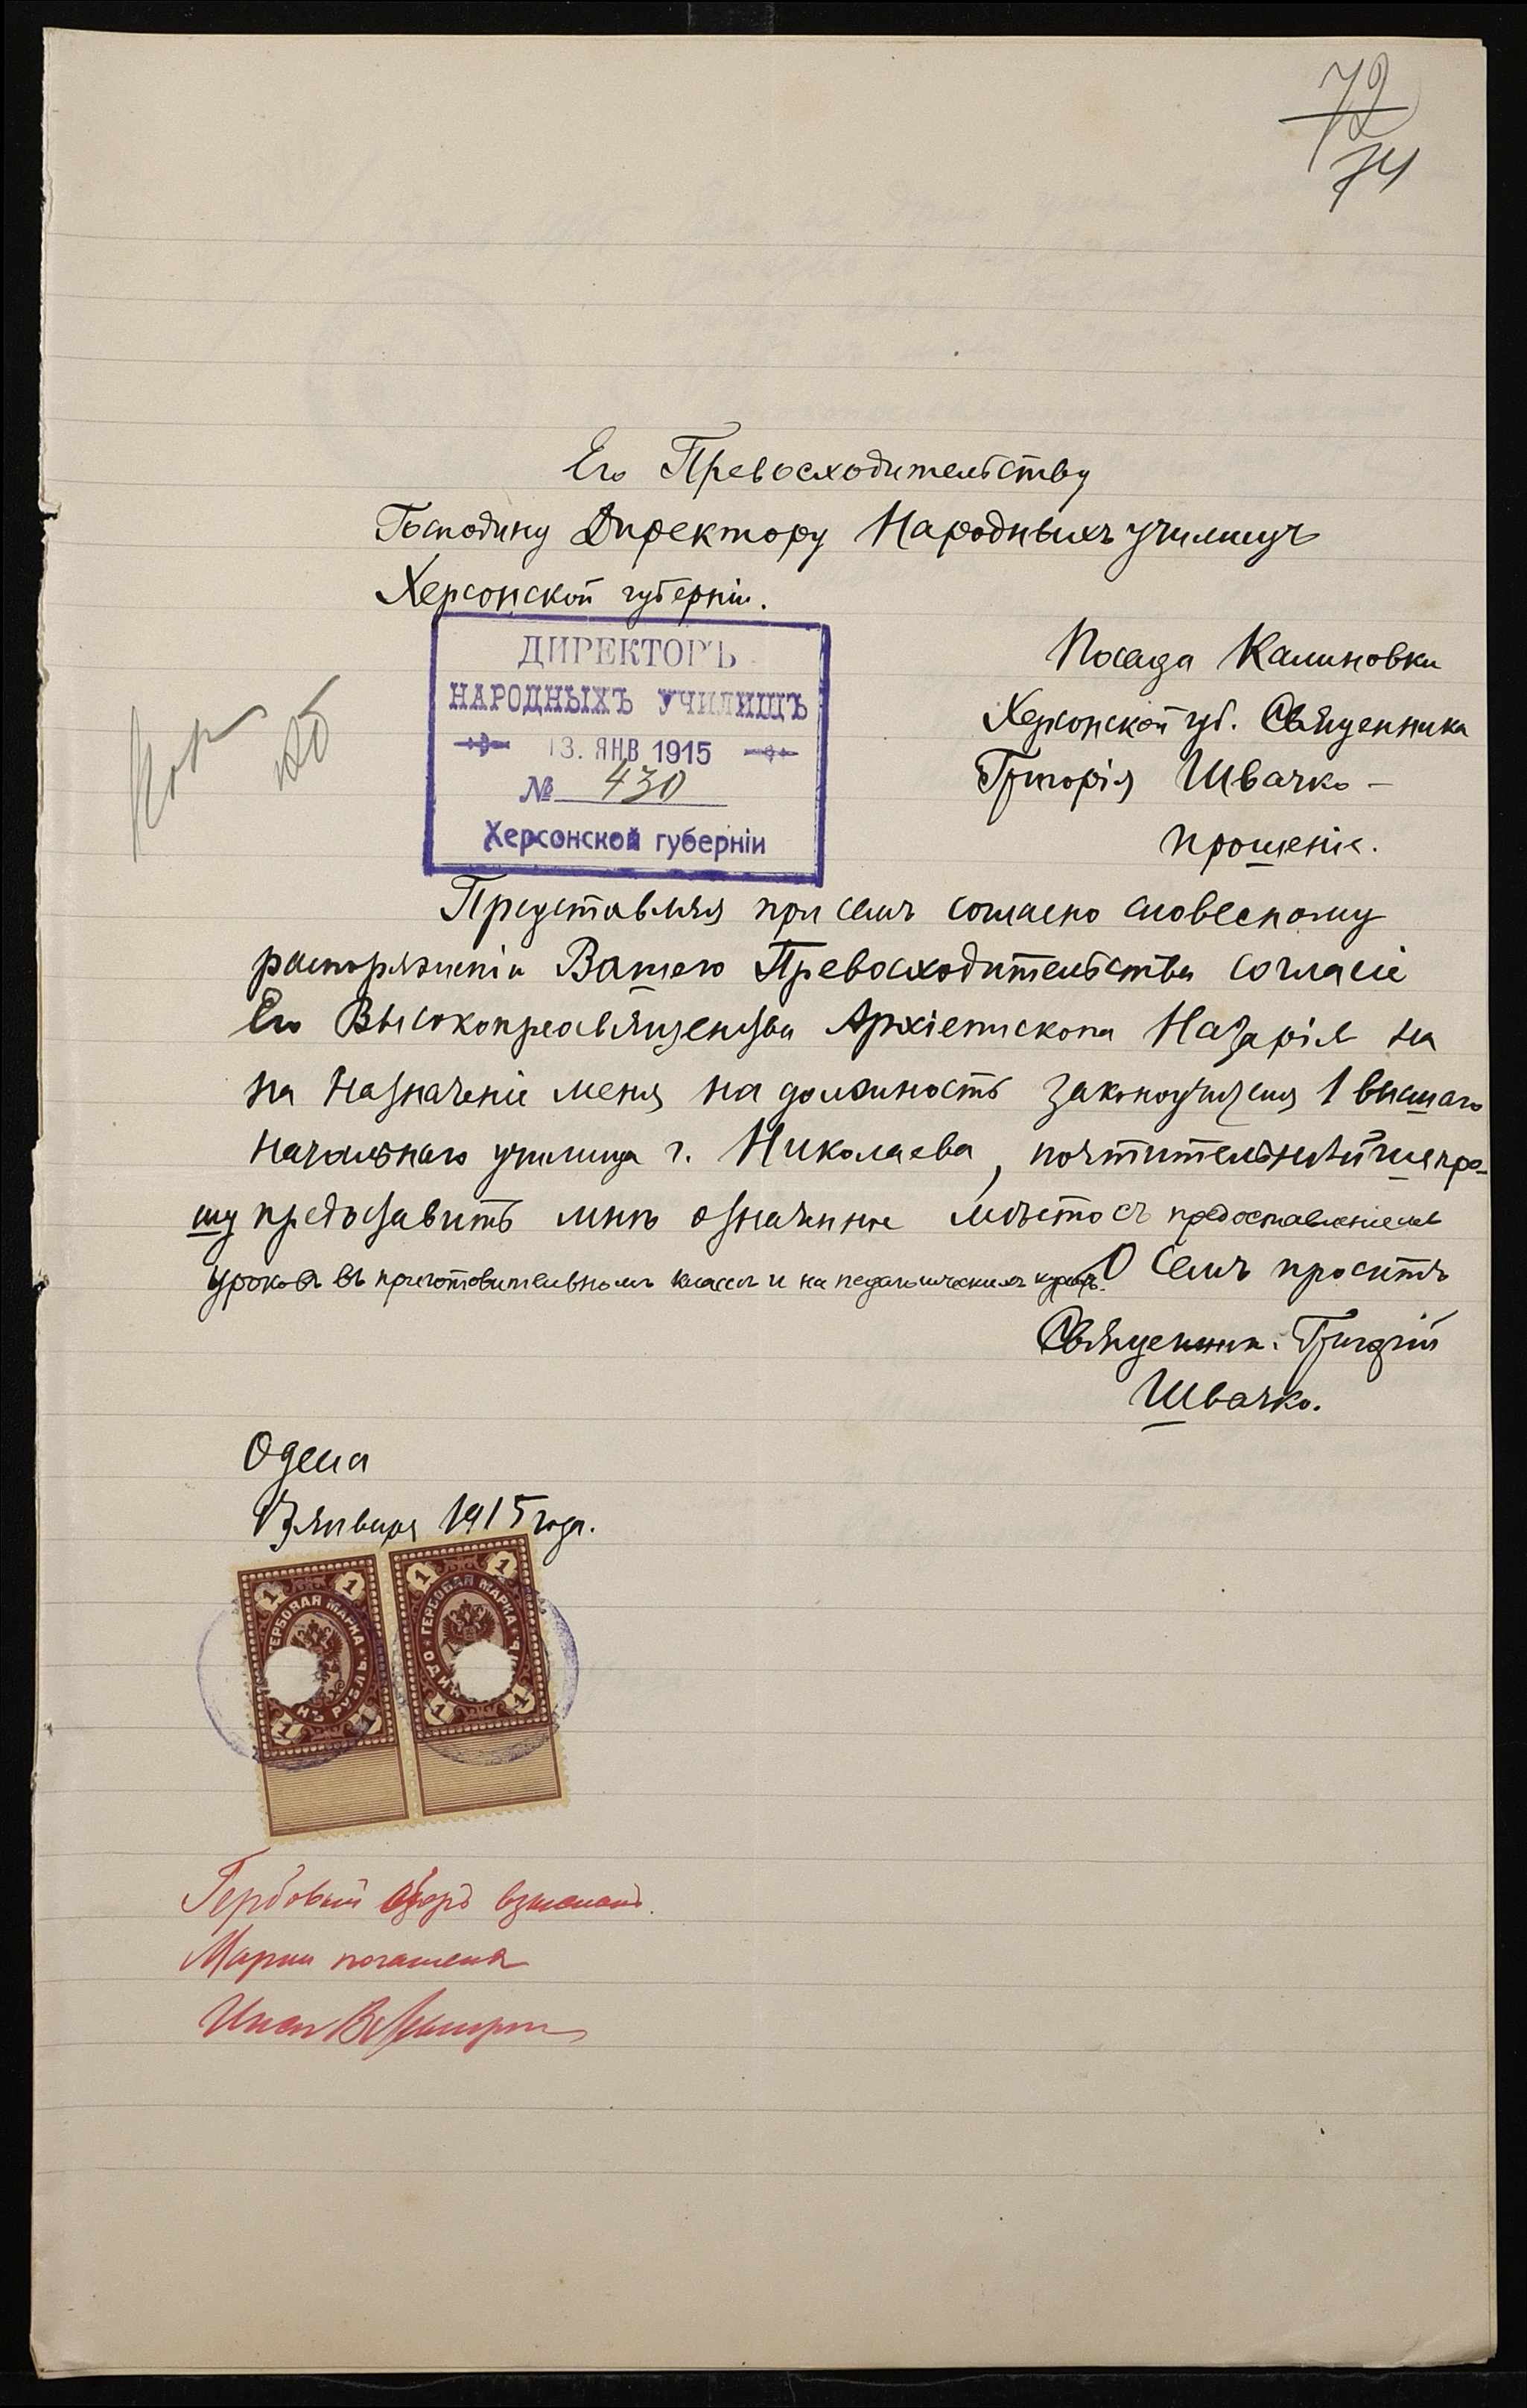 72
74
Его Превосходительству
Господину Директору Народныхъ училищъ
Херсонской губерніи.
ДИРЕКТОРЪ
НАРОДНЫХЪ УЧИЛИЩЪ
13. ЯНВ 1915
№ 430
Херсонской губерніи
Посада Калиновки
Херсонской губ. Священника
Григорія Швачко –
прошеніе.
Представляя при семъ согласно словесному
распоряженію Вашего Превосходительства согласіе
Его Высокопреосвященства Архіепископа Назарія на
на назначеніе меня на должность законоучителя 1 высшаго
начальнаго училища г. Николаева, почтительнѣйше про-
шу предоставить мнѣ означенное мѣсто съ предоставленіемъ
уроковъ въ приготовительномъ классѣ и на педагогическихъ курсахъ. О семъ проситъ
Священник. Григорій
Швачко.
Одесса
13 Января 1915 года.
ГЕРБОВАЯ МАРКА
НЪ РУБЛЬ
1 1 1 1
ГЕРБОВАЯ МАРКА
ОДИНЪ
1 1 1 1
Гербовый сборъ взысканъ.
Марки погашены